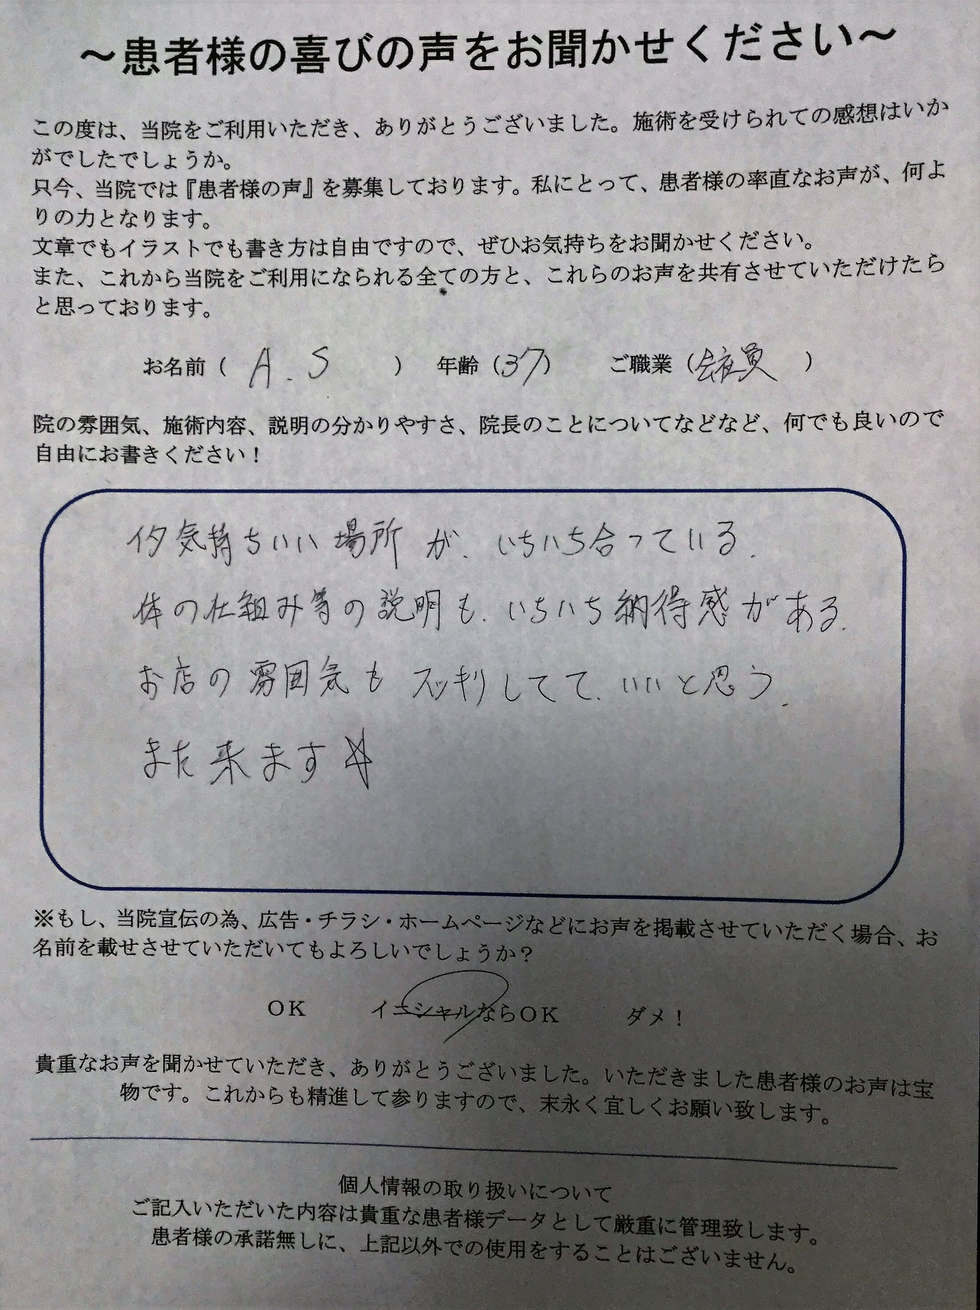 ～患者様の喜びの声をお聞かせください～
この度は、当院をご利用いただき、ありがとうございました。施術を受けられての感想はいか
がでしたでしょうか。
只今、当院では『患者様の声』を募集しております。私にとって、患者様の率直なお声が、何よ
りの力となります。
文章でもイラストでも書き方は自由ですので、ぜひお気持ちをお聞かせください。
また、これから当院をご利用になられる全ての方と、これらのお声を共有させていただけたら
と思っております。
お名前（ A.S ） 年齢（37） ご職業（会社員 ）
院の雰囲気、施術内容、説明の分かりやすさ、院長のことについてなどなど、何でも良いので
自由にお書きください！
気持ちいい場所が、いちいち合っている.
体の仕組み等の説明も、いちいち納得感がある.
お店の雰囲気もスッキリしてて、いいと思う.
また来ます☆
※もし、当院宣伝の為、広告・チラシ・ホームページなどにお声を掲載させていただく場合、お
名前を載せさせていただいてもよろしいでしょうか？
ＯＫ イニシャルならＯＫ ダメ！
貴重なお声を聞かせていただき、ありがとうございました。いただきました患者様のお声は宝
物です。これからも精進して参りますので、末永く宜しくお願い致します。
個人情報の取り扱いについて
ご記入いただいた内容は貴重な患者様データとして厳重に管理致します。
患者様の承諾無しに、上記以外での使用をすることはございません。